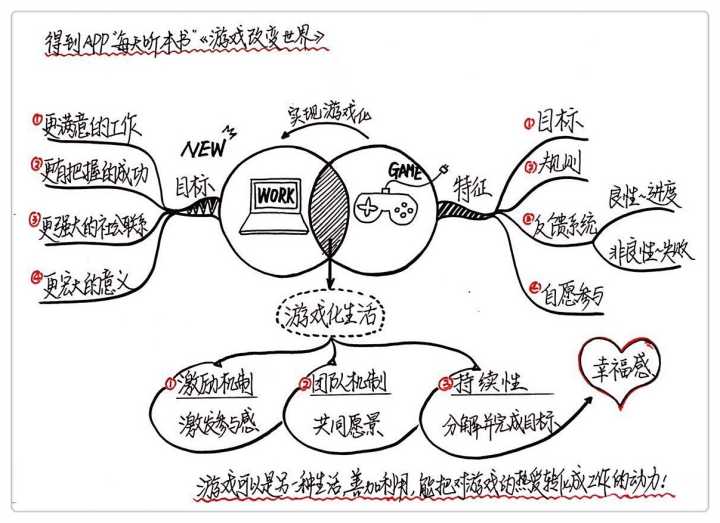 得到APP"每天听本书"《游戏改变世界》
实现游戏化
NEW
WORK
GAME
目标
①更满意的工作
②更有把握的成功
③更强大的社会联系
④更宏大的意义
特征
①目标
②规则
③反馈系统
良性~进度
非良性~失败
④自愿参与
游戏化生活
①激励机制
激发参与感
②团队机制
共同愿景
③持续性
分解并完成目标
幸福感
游戏可以是另一种生活,善加利用,能把对游戏的热爱转化成工作的动力!